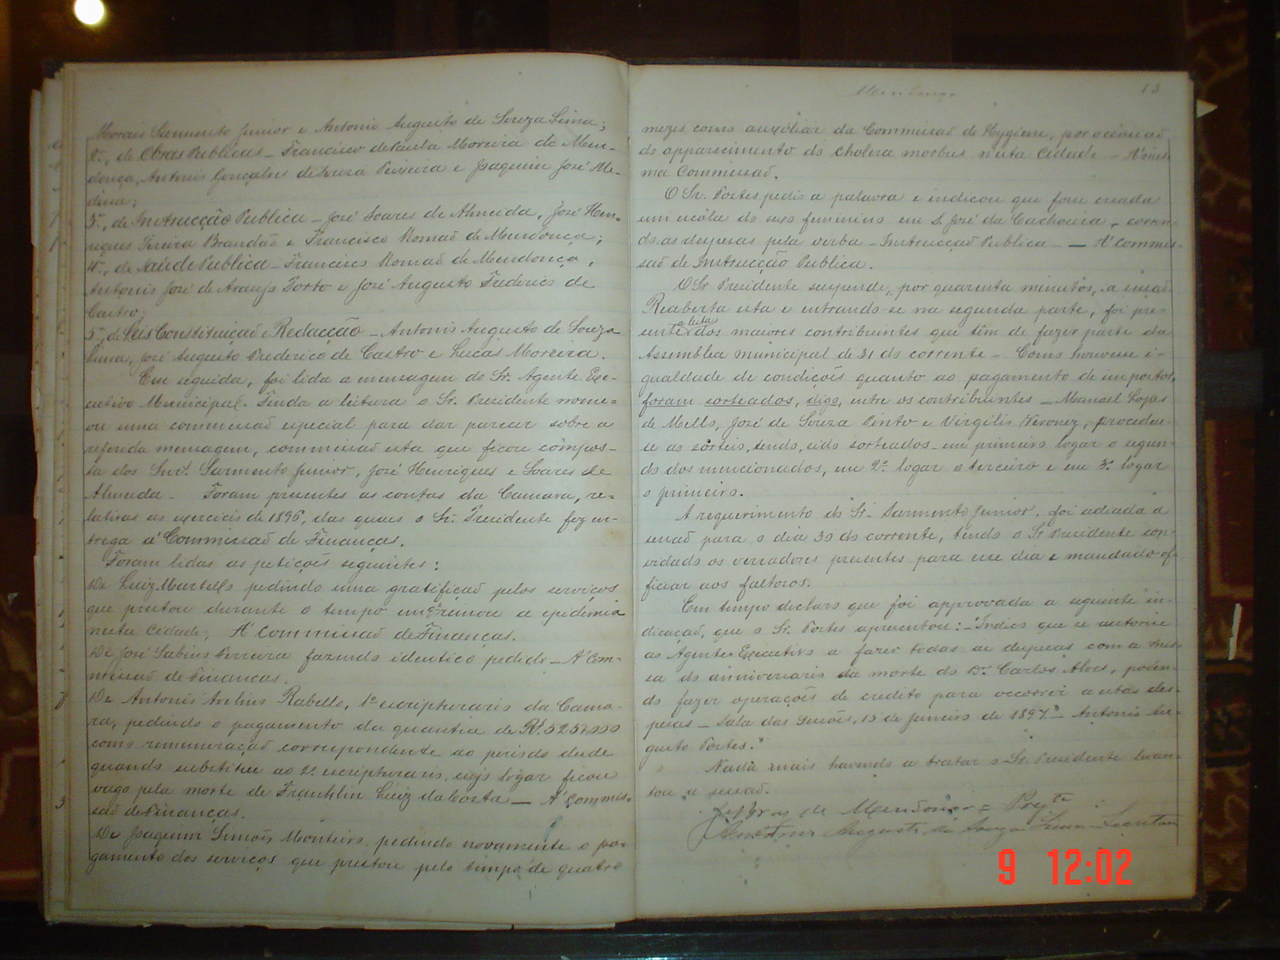 Moraes Sarmento Junior e Antonio Augusto de Souza Lima;
2ª, de Obras Publicas - Francisco de Paula Moreira de Men-
donça, Antonio Gonçalves de Souza Teixeira e Joaquim José Me-
dina;
3ª, de Instrucção Publica - José Soares de Almeida, José Hen-
riques Pereira Brandão e Francisco Romão de Mendonça;
4ª, de Saúde Publica - Francisco Romão de Mendonça,
Antonio José de Araujo Porto e José Augusto Frederico de
Castro;
5ª, de Leis Constituição e Redacção - Antonio Augusto de Souza
Lima, José Augusto Frederico de Castro e Lucas Moreira.
Em seguida, foi lida a mensagem do Sr. Agente Exe-
cutivo Municipal. Finda a leitura o Sr. Presidente nome-
ou uma commissão especial para dar parecer sobre a
referida mensagem, commissão esta que ficou compos-
ta dos Snrs. Sarmento Junior, José Henriques e Soares de
Almeida - Foram presentes as contas da Camara, re-
lativas ao exercicio de 1896, das quaes o Sr. Presidente fez en-
trega á Commissão de Finanças.
Foram lidas as petições seguintes:
De Luiz Martells pedindo uma gratificação pelos serviços
que prestou durante o tempo em q. reinou a epidemia
nesta Cidade; A' Commissão de Finanças.
De José Sabino Pereira fazendo identico pedido - A' Com-
missão de Finanças.
De Antonio Rabello, 1º escripturario da Cama-
ra, pedindo o pagamento da quantia de
como remuneração correspondente ao periodo desde
quando substitue ao 2º escripturario, cujo logar ficou
vago pela morte de Franklin Luiz da Costa - A' Commis-
são de Finanças.
De Joaquim Simões Monteiro, pedindo novamente o pa-
gamento dos serviços que prestou pelo tempo de quatro
13
mezes como auxiliar da Commissão de Hygiene, por occasião
do apparecimento do cholera morbus nesta Cidade - A' mes-
ma Commissão.
O Sr. Portes pediu a palavra e indicou que fosse creada
uma escóla do sexo feminino em S. José da Cachoeira, corren-
do as despezas pela verba - Instrucção Publica - - A' Commis-
são de Instrucção Publica.
O Sr. Presidente suspende, por quarenta minutos, a sessão
Reaberta esta e entrando-se na segunda parte, foi pre-
sente a lista dos maiores contribuintes que têm de fazer parte da
Assembléa municipal de 31 do corrente - Como houvesse i-
gualdade de condições quanto ao pagamento de impostos,
foram sorteados, digo, entre os contribuintes - Manoel
de Mello, José de Souza Pinto e Virgilio Veronez, proceden-
se as sorteio, tendo sido sorteados em primeiro logar o segun-
do dos mencionados, em 2º logar o terceiro e em 3º logar
o primeiro.
A requerimento do Sr. Sarmento Junior, foi adiada a
sessão para o dia 30 do corrente, tendo o Sr Presidente con-
vidado os vereadores presentes para esse dia e mandado of-
ficiar aos faltosos.
Em tempo declaro que foi approvada a seguinte in-
dicação, que o Sr. Portes apresentou: - "Indico que se autorise
ao Agente Executivo a fazer todas as despezas com a mis-
sa do anniversario da morte do Dr. Carlos Alves, poden-
do fazer operações de credito para occorrer a estas des-
pezas - Sala das Sessões, 15 de Janeiro de 1897. - Antonio Au-
gusto Portes."
Nada mais havendo a tratar o Sr. Presidente levan-
tou a sessão.
de Mendonça = Presid.te
Antonio Augusto de Souza Lima - Secretario
9 12:02